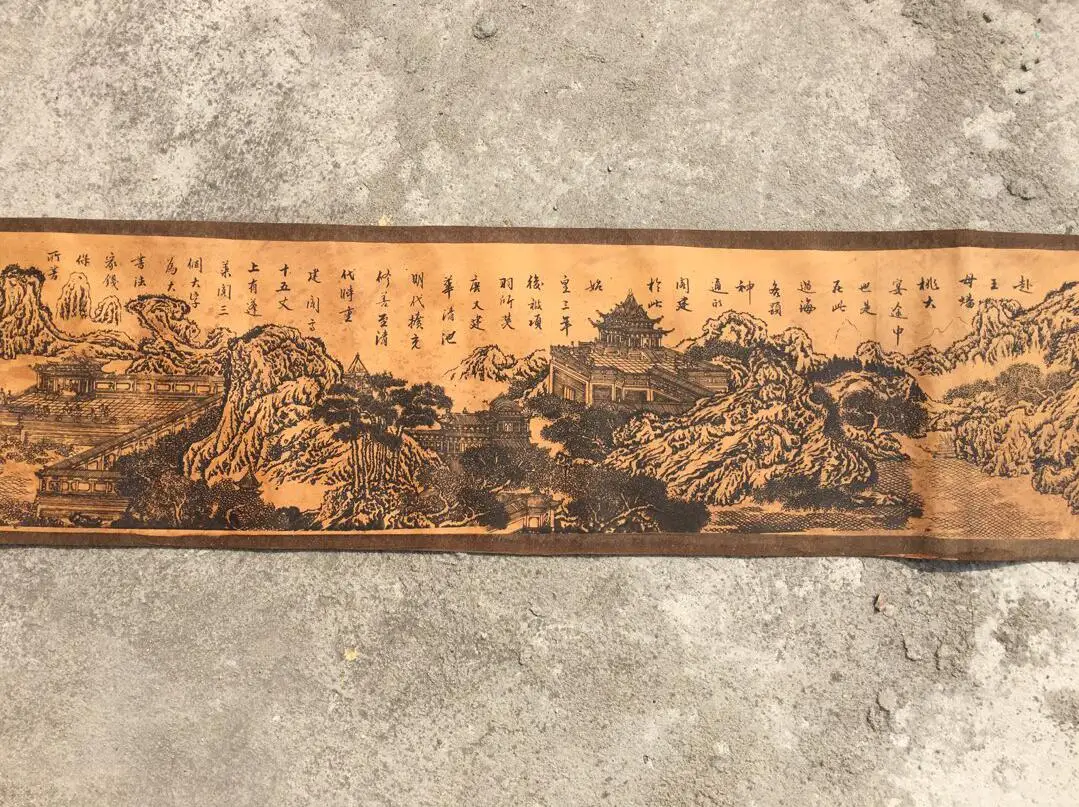 赴
王
母墙
桃大
宴途中
世先
在此
過海
各顕
种
通的
閣建
於此
始
皇三年
後被項
羽所焚
唐又建
華清池
明代擴充
修善至清
代時重
建閣高
十五丈
上有蓬
萊閣三
個大字
為大
書法
家錢
作
所書